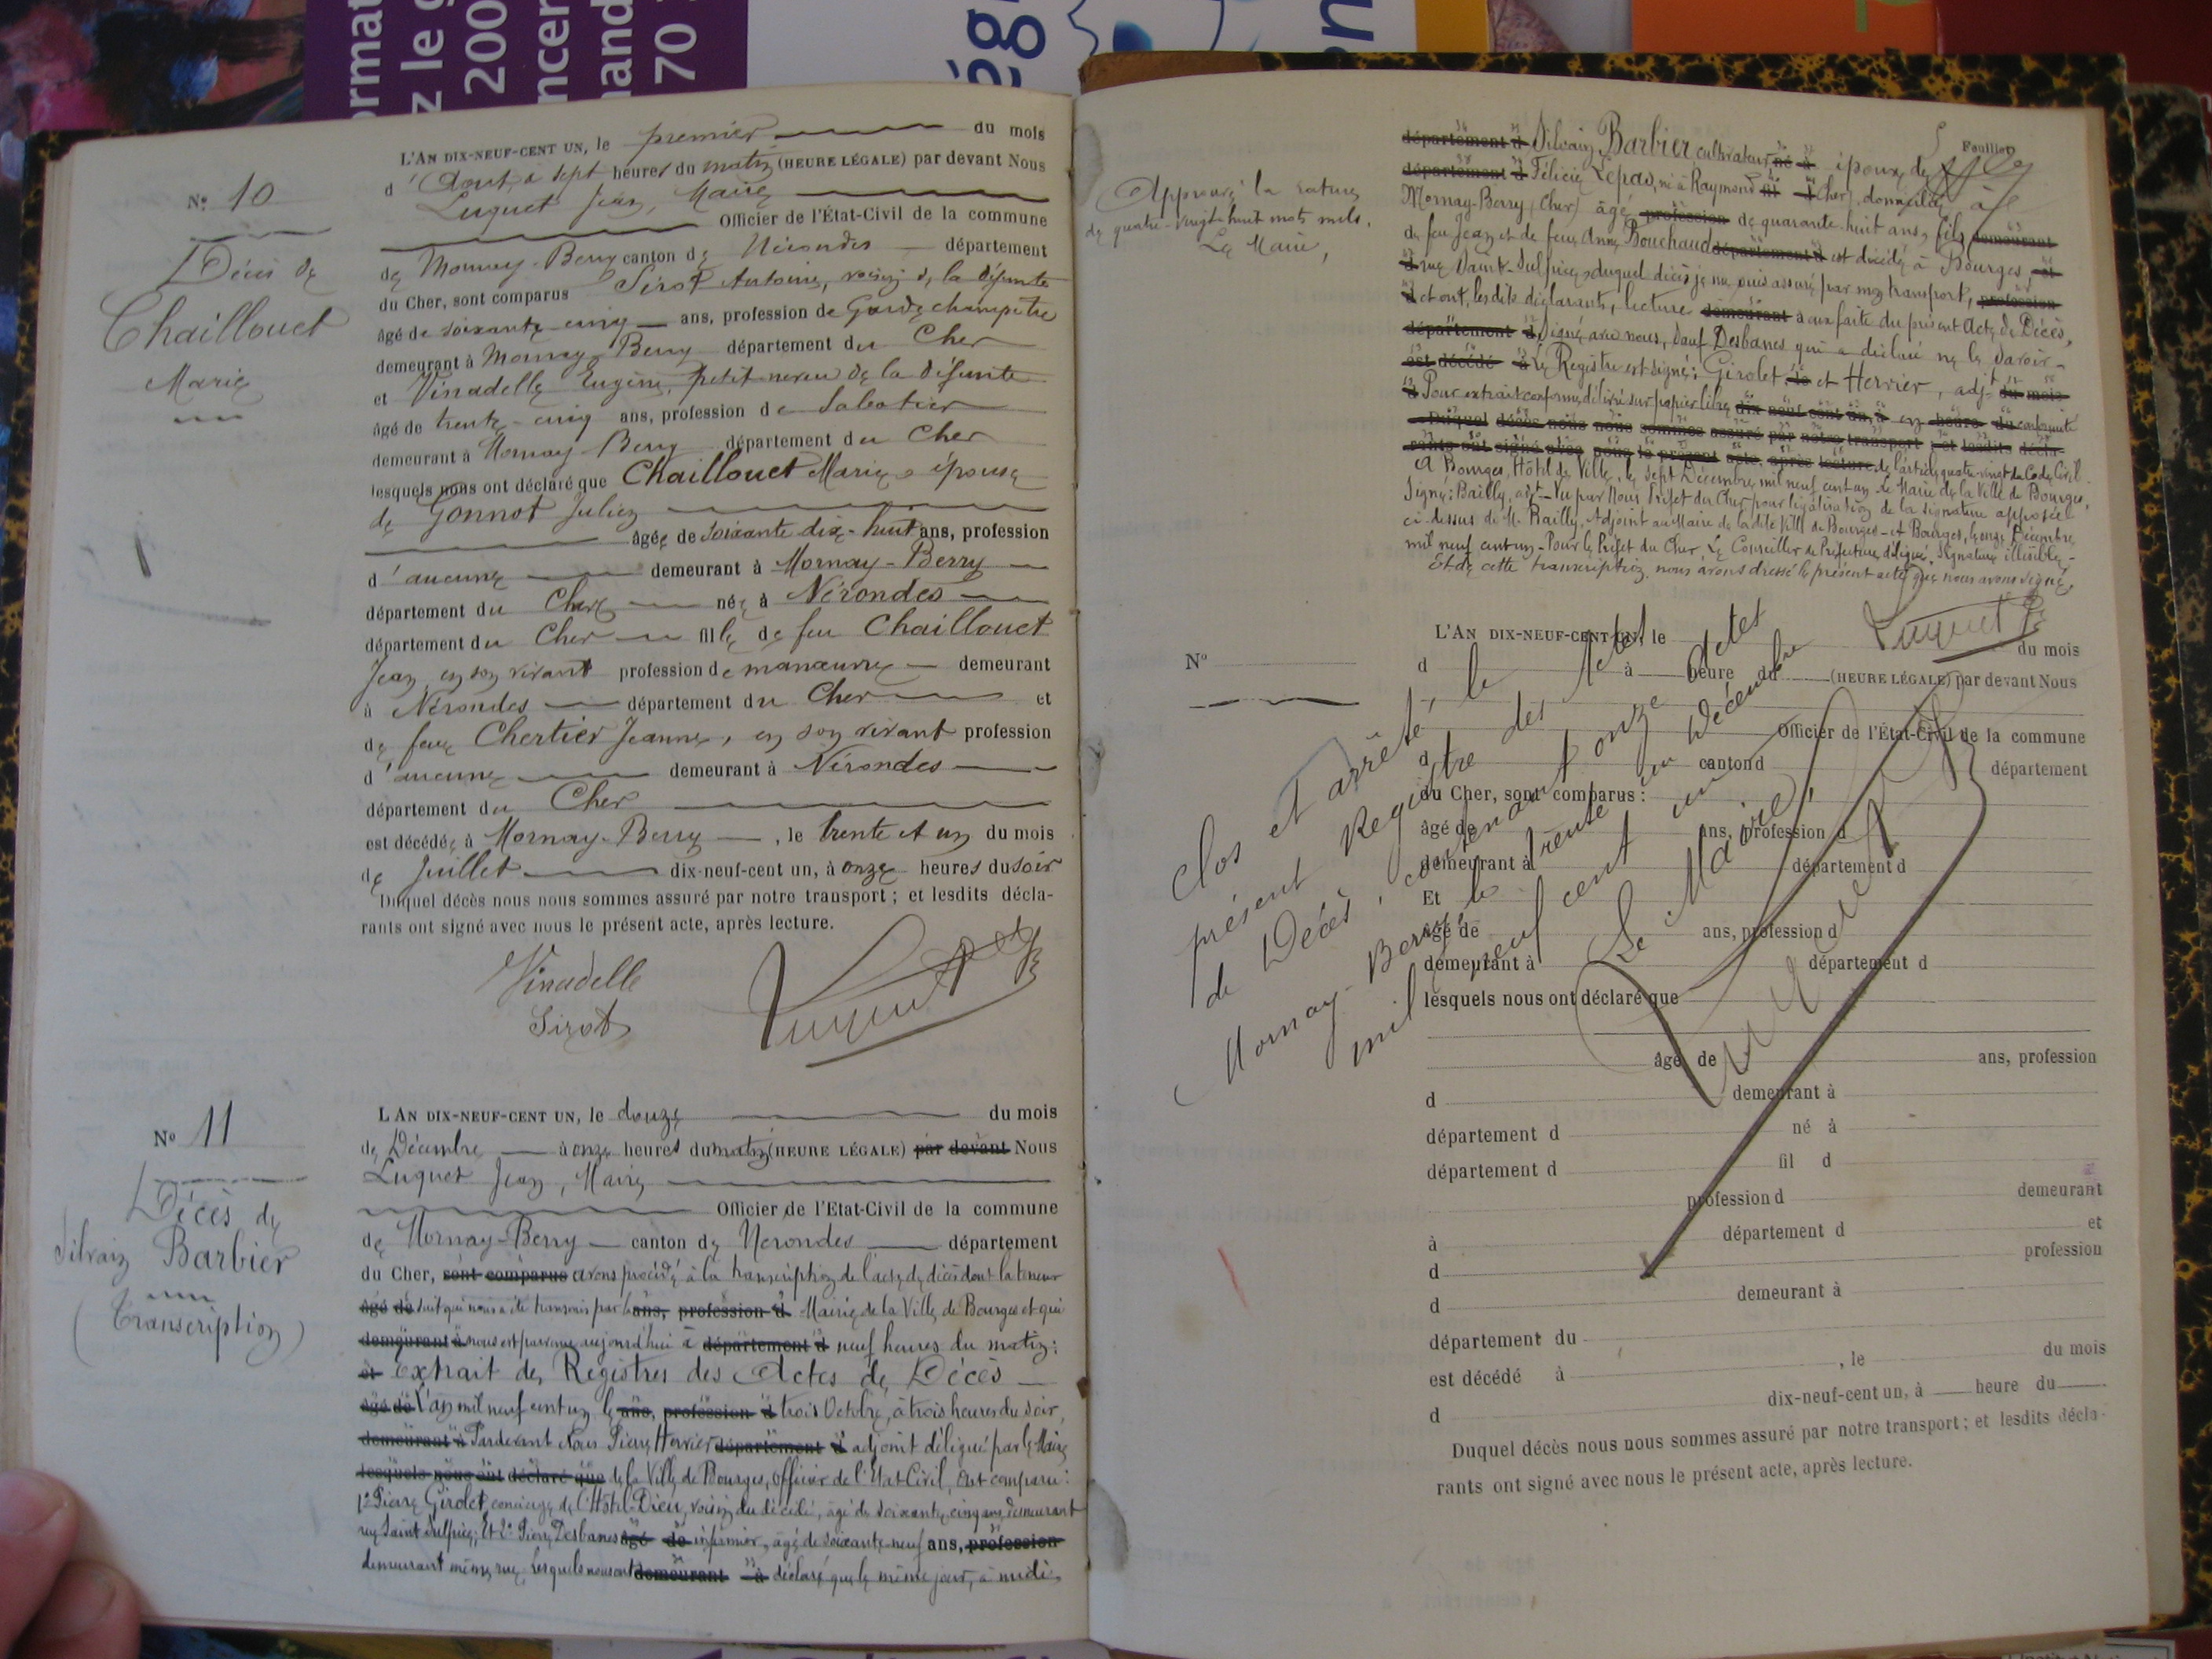 N° 10
Décès de
Chaillouet
Marie
L'AN DIX-NEUF-CENT UN, le premier du mois
d'Aout, à sept heures du matin (HEURE LÉGALE) par devant Nous
Luquet Jean, Maire
Officier de l'État-Civil de la commune
de Mornay-Berry canton de Nérondes département
du Cher, sont comparus Sirot Antoine, voisin de la défunte
âgé de soixante cinq ans, profession de Garde champêtre
demeurant à Mornay-Berry département du Cher
et Vinadelle Eugène, petit neveu de la défunte
âgé de trente-cinq ans, profession de Sabotier
demeurant à Mornay-Berry département du Cher
lesquels nous ont déclaré que Chaillouet Marie, épouse
de Gonnot Julien
âgée de soixante dix-huit ans, profession
d'aucune demeurant à Mornay-Berry
département du Cher née à Nérondes
département du Cher fille de feu Chaillouet
Jean en son vivant profession de manœuvre demeurant
à Nérondes département du Cher et
de feue Chertier Jeanne, en son vivant profession
d'aucune demeurant à Nérondes
département du Cher
est décédée à Mornay-Berry, le trente et un du mois
de Juillet dix-neuf-cent un, à onze heures du soir
Duquel décès nous nous sommes assuré par notre transport ; et lesdits décla-
rants ont signé avec nous le présent acte, après lecture.
Vinadelle
Sirot
Luquet
N° 11
Décès de
Silvain Barbier
(Transcription)
L'AN DIX-NEUF-CENT UN, le douze du mois
de Décembre à onze heures du matin (HEURE LÉGALE) par devant Nous
Luquet Jean, Maire
Officier de l'Etat-Civil de la commune
de Mornay-Berry canton de Nérondes département
du Cher, sont comparus avons procédé à la transcription de l'acte de décès dont la teneur
âgé de suit qui nous a été transmis par la ans, profession d Mairie de la Ville de Bourges et qui
demeurant à nous est parvenu aujourd'hui à département d neuf heures du matin :
et Extrait des Registres des Actes de Décès
âgé de L'an mil neuf cent un le ans, profession d trois Octobre, à trois heures du soir,
demeurant à Pardevant Nous Pierre Hervier département d adjoint délégué par le Maire
lesquels nous ont déclaré que de la Ville de Bourges, Officier de l'Etat Civil, Ont comparu :
1° Pierre Girolet, concierge de l'Hôtel-Dieu, voisin du décédé, âgé de soixante cinq ans, demeurant
rue Saint Sulpice ; Et 2° Pierre Desbanes âgé de infirmier, âgé de soixante neuf ans, profession
demeurant même rue, lesquels nous ont demeurant à déclaré que le même jour, à midi,
Approuvé la rature
de quatre-vingt huit mots nuls.
Le Maire,
Feuillet
département d Silvain Barbier, cultivateur né à époux de
département d Félicie Lepas, né à Raymond fil d (Cher), domicilié à
Mornay-Berry (Cher) âgé profession de quarante-huit ans, fils demeurant
de feu Jean et de feue Anne Bouchaud département d est décédé à Bourges, et
d rue Saint-Sulpice, duquel décès je me suis assuré par mon transport, profession
d et ont, les dits déclarants, lecture demeurant à eux faite du présent Acte de Décès,
département d Signé avec nous, sauf Desbanes qui a déclaré ne le savoir
est décédé à Le Registre est signé : Girolet le et Hervier, adjt du mois
d Pour extrait conforme, délivré sur papier libre dix neuf cent un, à en heure du conformité
Duquel décès nous nous sommes assuré par notre transport ; et lesdits décla-
rants ont signé avec nous le présent acte, après lecture. de l'article quatre-vingt du Code Civil
A Bourges, Hôtel de Ville, le sept Décembre mil neuf cent un. Le Maire de la Ville de Bourges,
Signé : Bailly, adjt - Vu par Nous Préfet du Cher pour légalisation de la signature apposée
ci-dessus de M. Bailly, Adjoint au Maire de la dite Ville de Bourges - A Bourges, le onze Décembre
mil neuf cent un - Pour le Préfet du Cher Le Conseiller de Préfecture délégué, Signature illisible,
Et de cette transcription, nous avons dressé le présent acte que nous avons signé,
Luquet
N°
L'AN DIX-NEUF-CENT UN, le du mois
d à heure du (HEURE LÉGALE) par devant Nous
Officier de l'État-Civil de la commune
d canton d département
du Cher, sont comparus :
âgé de ans, profession d
demeurant à département d
Et
âgé de ans, profession d
demeurant à département d
lesquels nous ont déclaré que
âgé de ans, profession
d demeurant à
département d né à
département d fil d
profession d demeurant
à département d et
d profession
d demeurant à
département du
est décédé à , le du mois
d dix-neuf-cent un, à heure du
Duquel décès nous nous sommes assuré par notre transport ; et lesdits décla-
rants ont signé avec nous le présent acte, après lecture.
Clos et arrêté, le
présent Registre des Actes
de Décès, contenant onze Actes
Mornay-Berry le trente un Décembre
mil neuf cent un
Le Maire,